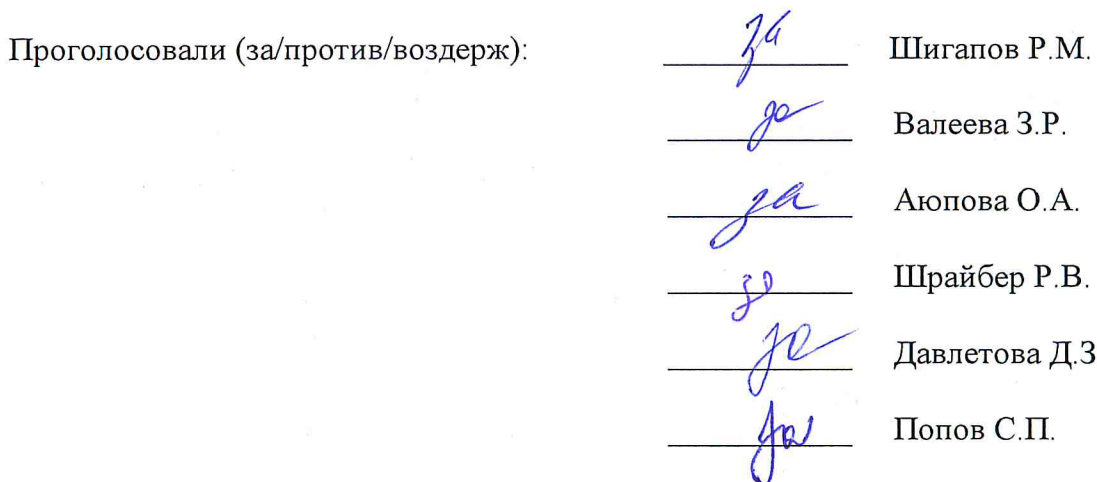 Проголосовали (за/против/воздерж): за Шигапов Р.М.
за Валеева З.Р.
за Аюпова О.А.
за Шрайбер Р.В.
за Давлетова Д.З
за Попов С.П.